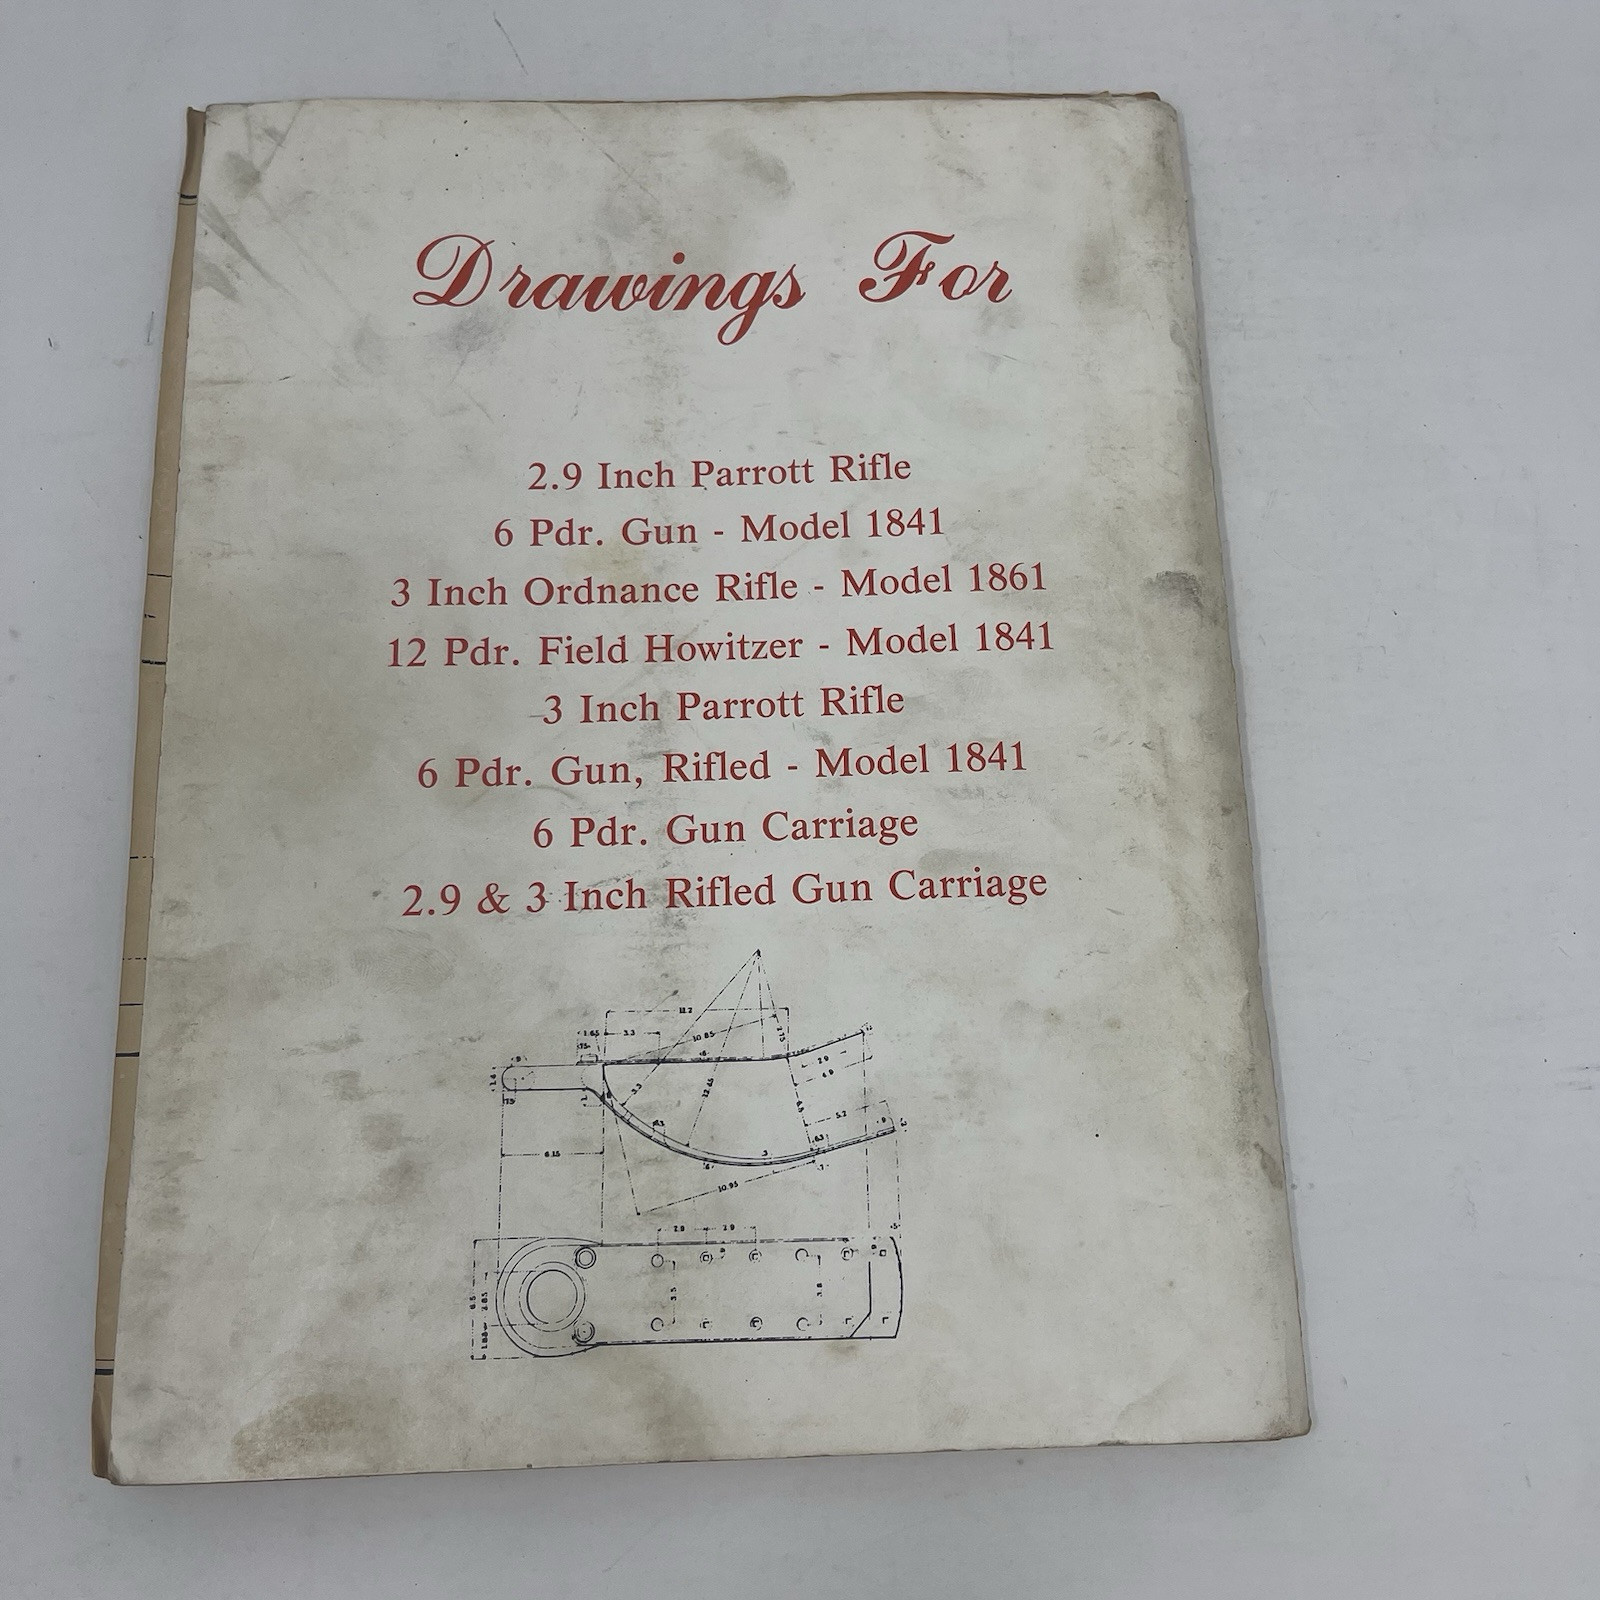 Drawings For
2.9 Inch Parrott Rifle
6 Pdr. Gun - Model 1841
3 Inch Ordnance Rifle - Model 1861
12 Pdr. Field Howitzer - Model 1841
3 Inch Parrott Rifle
6 Pdr. Gun, Rifled - Model 1841
6 Pdr. Gun Carriage
2.9 & 3 Inch Rifled Gun Carriage
11.2
1.65 3.3
10.85
2.9
4.9
3.3
12.65
5.2
6.15
10.95
2.9 2.9
3.5
3.8
6.5